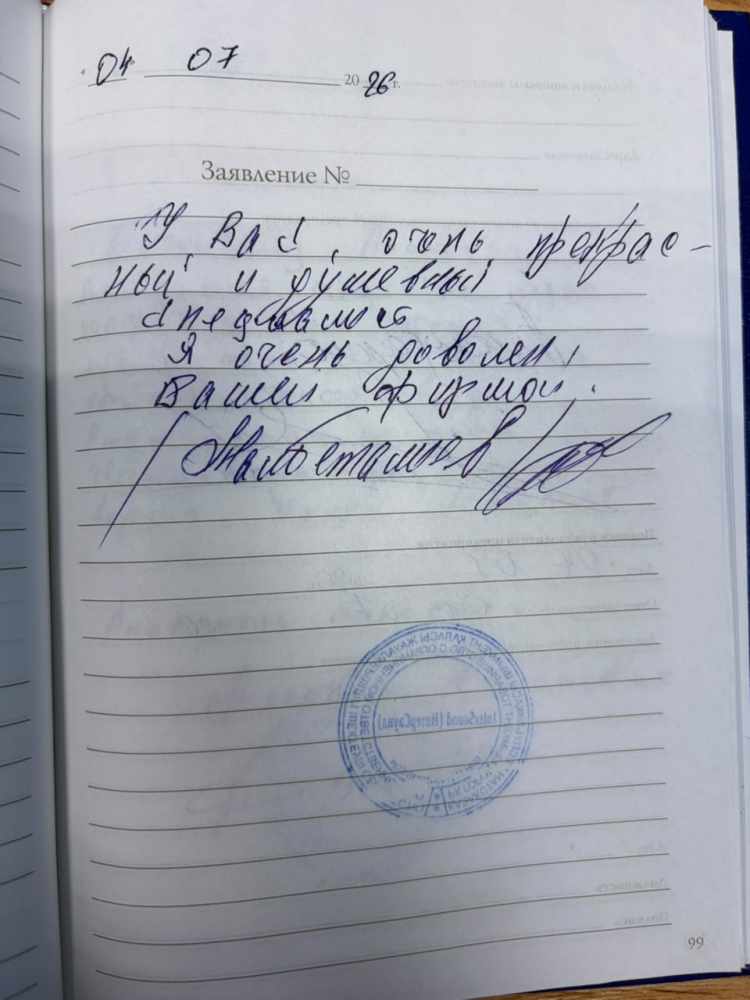 04 07 2026 г.
Заявление №
У Вас, очень, прекрас-
ный и душевный
специалист
Я очень доволен,
Вашей фирмой.
InterSound (ИнтерСаунд)
99